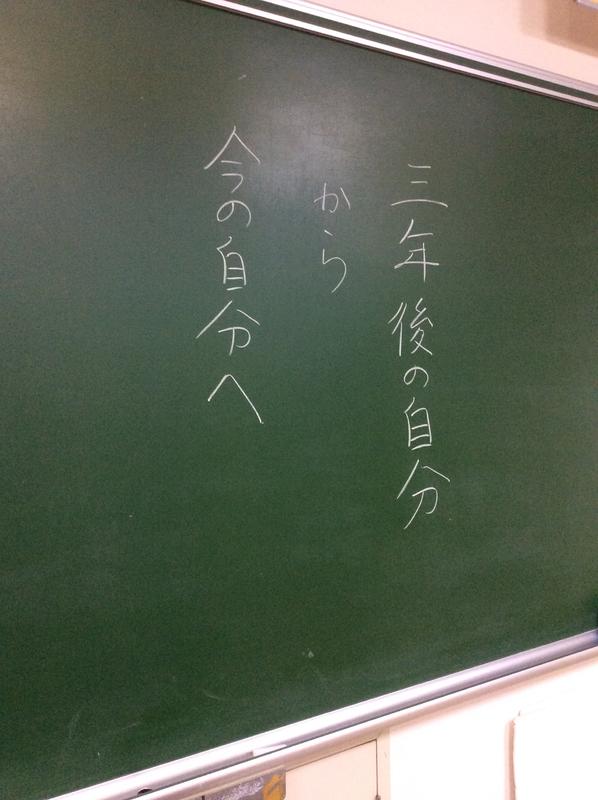 三年後の自分
から
今の自分へ